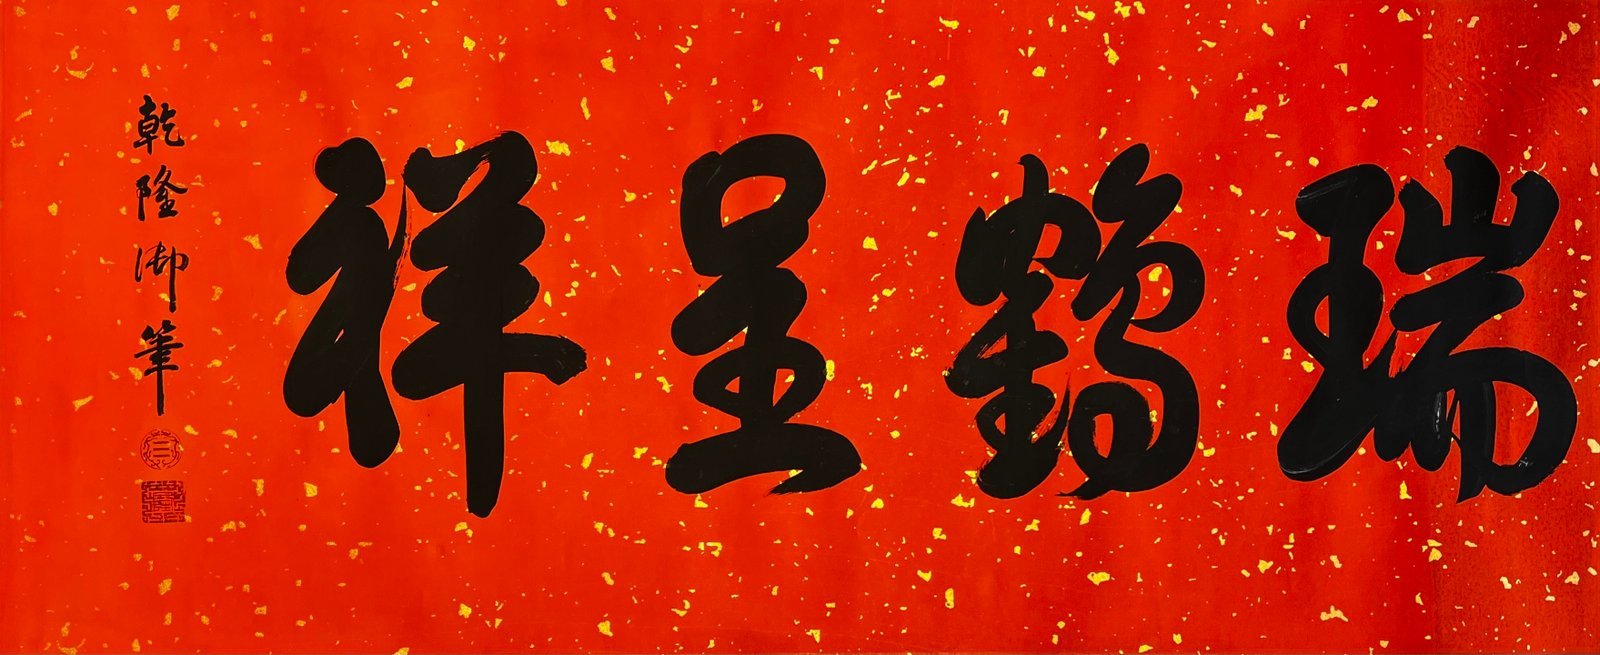 瑞鶴呈祥
乾隆御筆